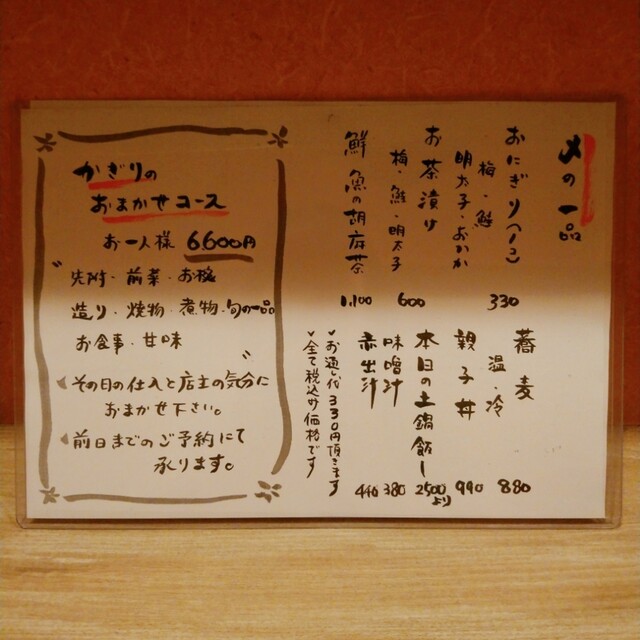 〆の一品
おにぎり(1コ)
梅・鮭
明太子・おかか
330
お茶漬け
梅・鮭・明太子
600
鮮魚の胡麻茶
1,100
蕎麦
温・冷
880
親子丼
990
本日の土鍋飯
2500より
味噌汁
380
赤出汁
440
お通し代330円頂きます
全て税込み価格です
かぎりの
おまかせコース
お一人様 6,600円
先附・前菜・お椀
造り・焼物・煮物・旬の一品
お食事・甘味
その日の仕入と店主の気分に
おまかせ下さい。
前日までのご予約にて
承ります。